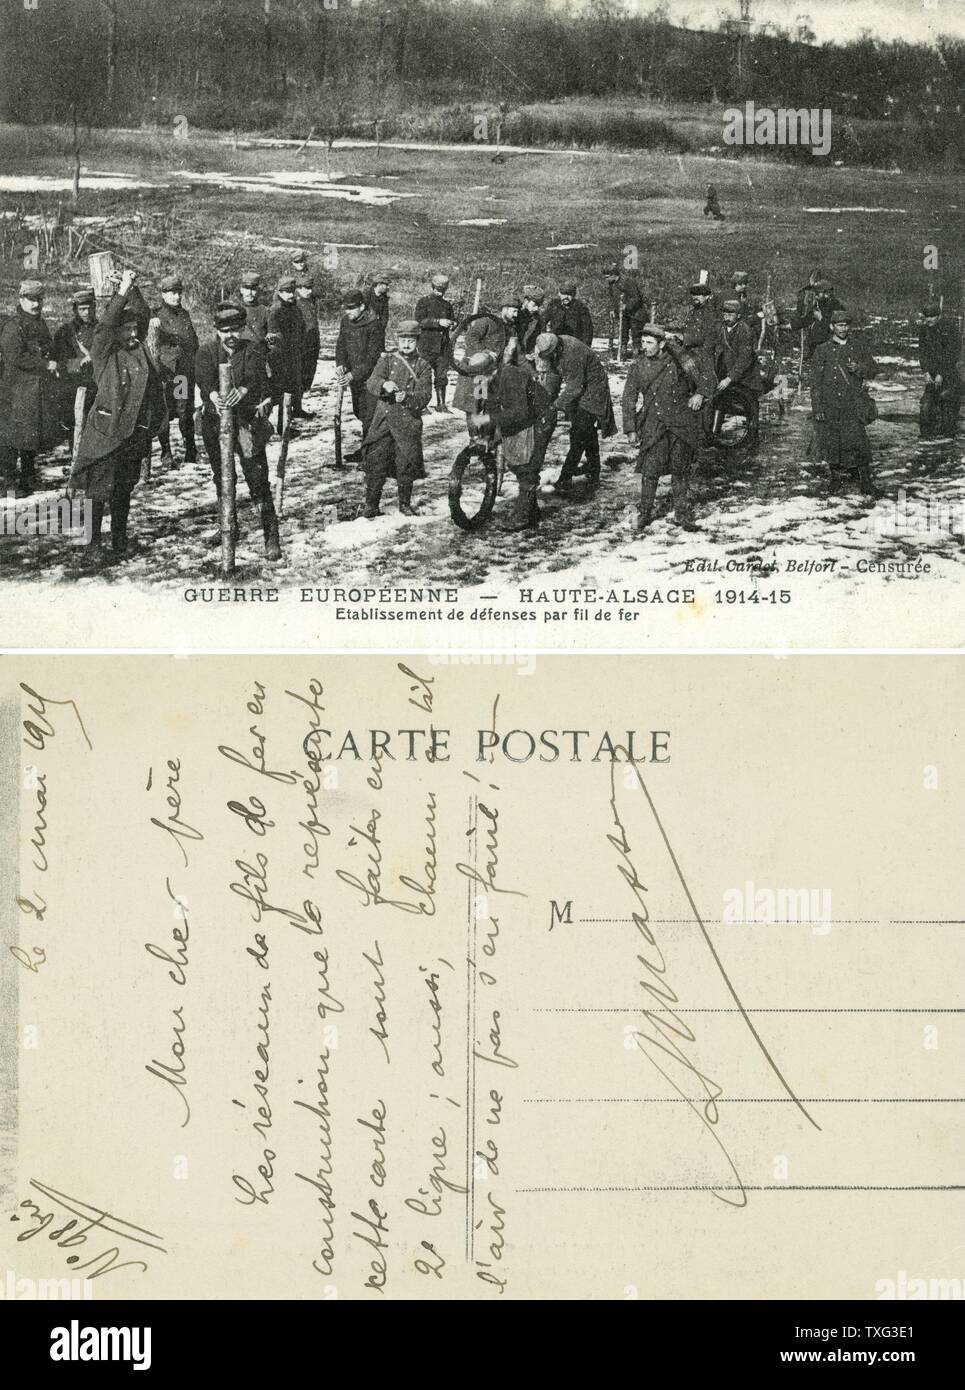 Edit. Cardot, Belfort – Censurée
GUERRE EUROPÉENNE — HAUTE-ALSACE 1914-15
Etablissement de défenses par fil de fer
CARTE POSTALE
M
Le 2 mai 1915
Mon cher frère
Les réseaux de fils de fer en
construction que te représente
cette carte sont faites en
2e ligne ; aussi, chacun a-t-il
l'air de ne pas s'en faire ! —
alamy
Image ID: TXG3E1
www.alamy.com